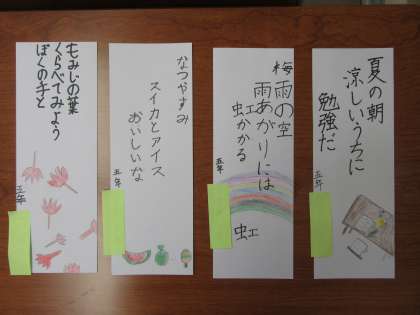 夏の朝
涼しいうちに
勉強だ
五年
梅雨の空
雨あがりには
虹かかる
五年
虹
なつやすみ
スイカとアイス
おいしいな
五年
もみじの葉
くらべてみよう
ぼくの手と
五年